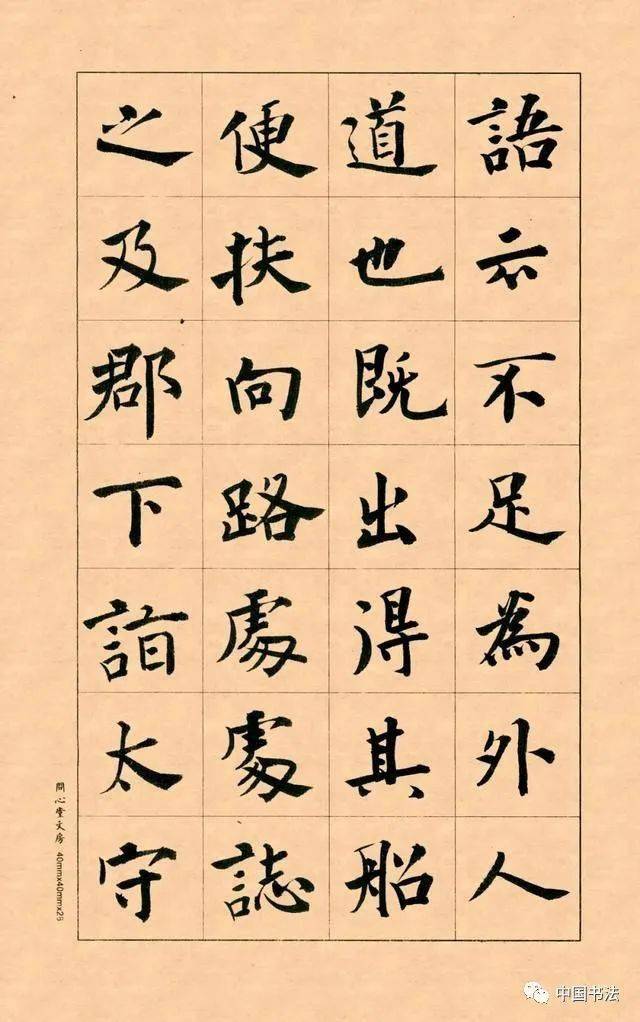 語云不足為外人
道也既出得其船
便扶向路處處誌
之及郡下詣太守
問心堂文房 40mmx40mmx28
中国书法